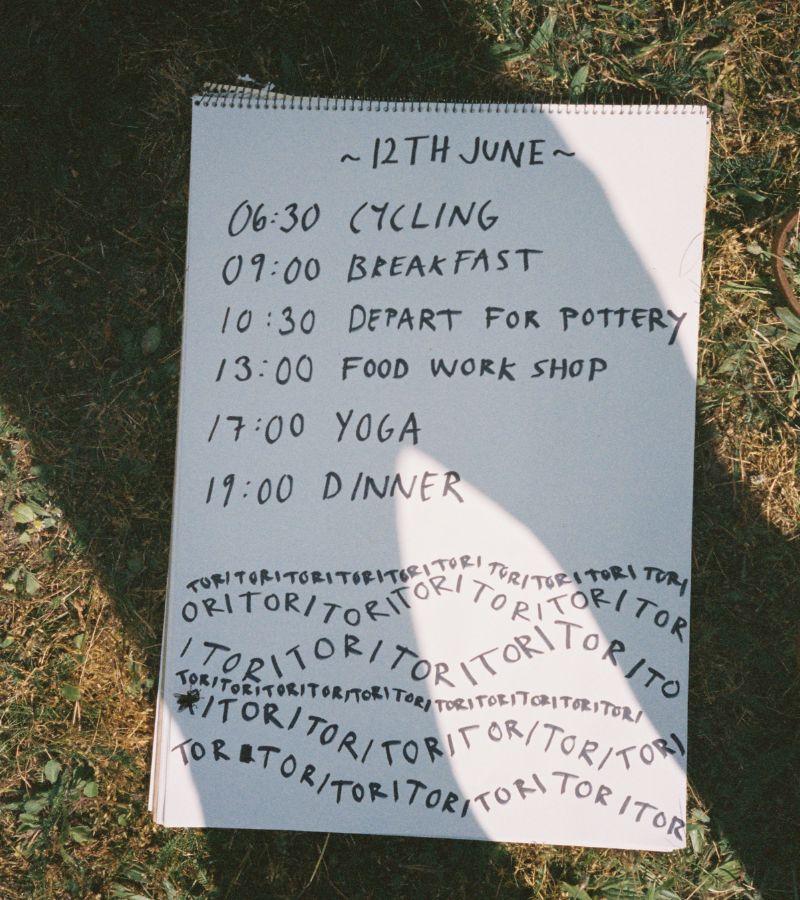 ~12TH JUNE~
06:30 CYCLING
09:00 BREAKFAST
10:30 DEPART FOR POTTERY
13:00 FOOD WORK SHOP
17:00 YOGA
19:00 DINNER
TORITORITORITORITORITORITORITORITORITORI
ORITORITORITORITORITORITOR
ITORITORITORITORITORITO
TORITORITORITORITORITORITORITORITORITORITORI
ITORITORITORITORITORITORI
TOR TORITORITORITORITORITOR